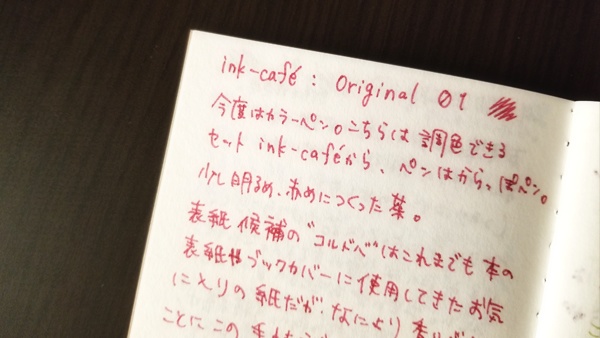 ink-café : Original 01
今度はカラーペン。こちらは調色できる
セット ink-caféから、ペンはからっぽペン。
少し明るめ、赤めにつくった葉。
表紙候補の"コルドベ"はこれまでも本の
表紙やブックカバーに使用してきたお気
に入りの紙だが、なにより香りが
ことにこの